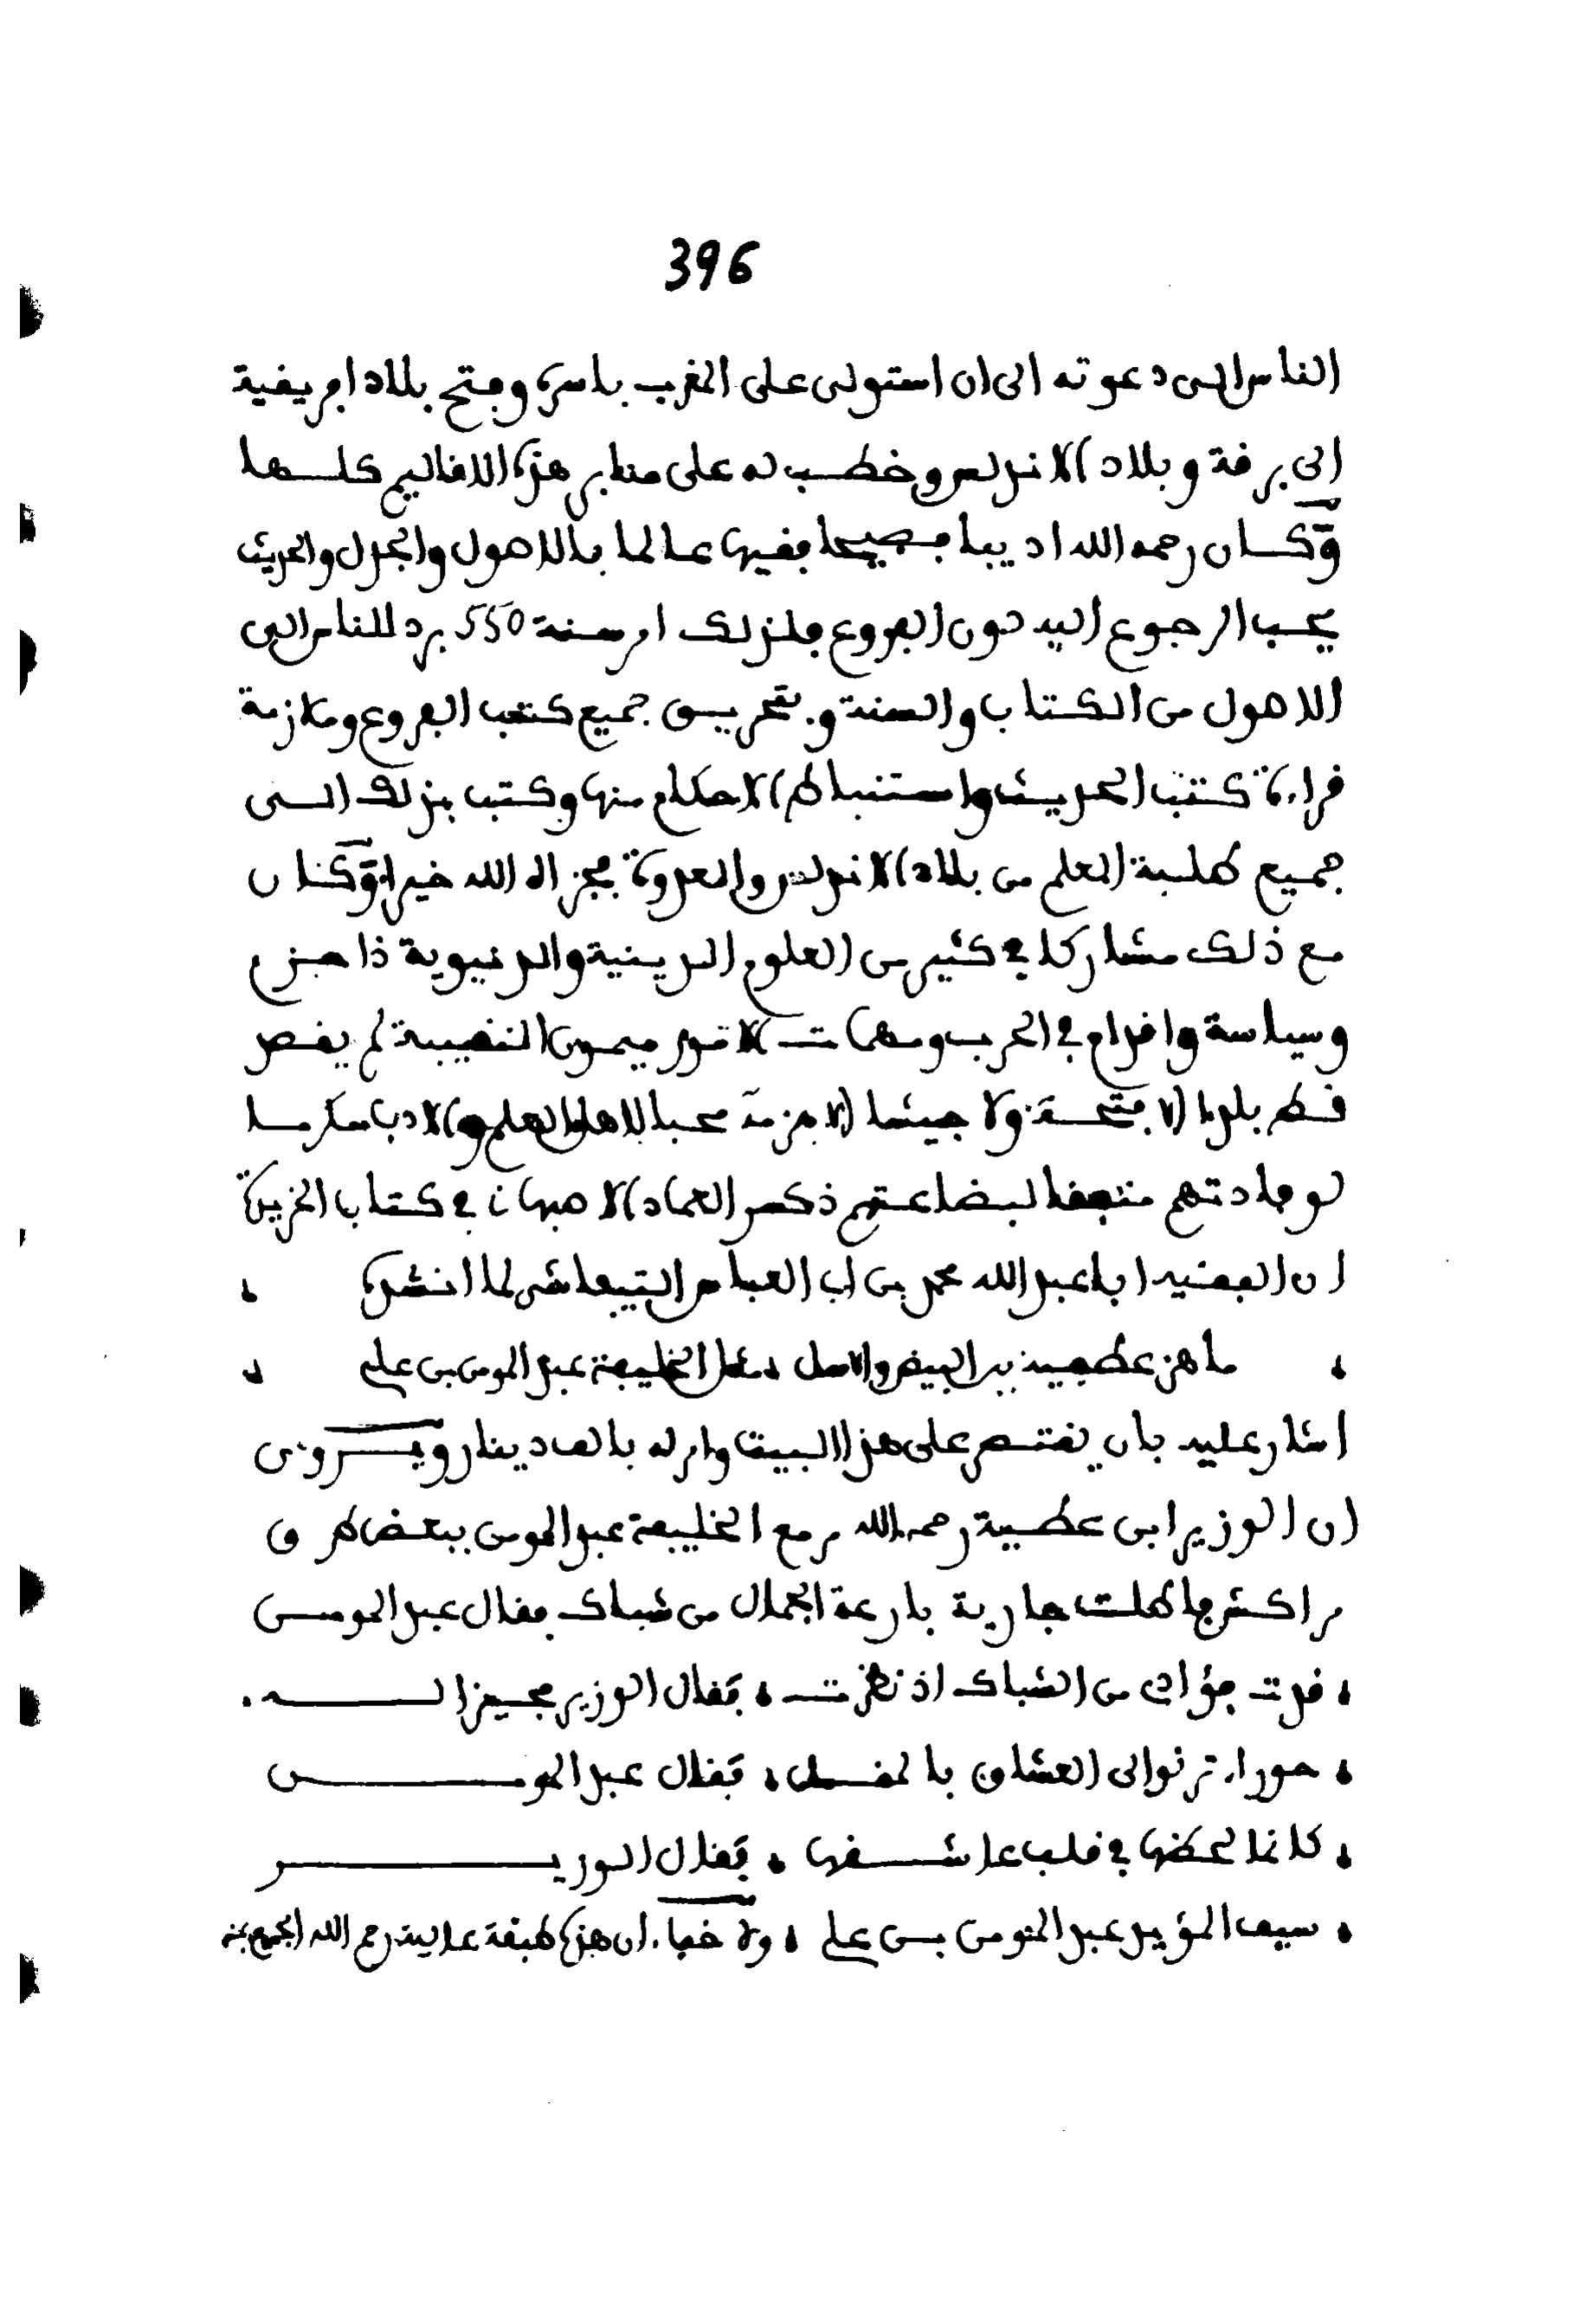 396
الناس الى دعوته الى ان استولى على المغرب باسره وفتح بلاد افريقية
الى برقة وبلاد الاندلس وخطب له على منابر هذه الاقاليم كلها
وكان رحمه الله اديبا فصيحا فقيها عالما بالاصول والجدل والحديث
يحب الرجوع اليه دون الفروع فلذلك امر سنة 550 برد الناس الى
الاصول من الكتاب والسنة وتحريق جميع كتب الفروع وملازمة
قراءة كتب الحديث واستنباط الاحكام منها وكتب بذلك الى
جميع طلبة العلم من بلاد الاندلس والعدوة فجزاه الله خيرا وكان
مع ذلك مشاركا في كثير من العلوم الدينية والدنيوية ذا حزم
وسياسة واقدام في الحرب ومهمات الامور ميمون النقيبة لم يقصد
قط بلدا الا فتحه ولا جيشا الا هزمه محبا لاهل العلم والادب مكرما
لوفادتهم منفقا لبضاعتهم ذكر العماد الاصبهاني في كتاب الخريدة
ان الفقيه ابا عبد الله محمد بن ابي العباس التيفاشي لما انشده
ما هز عطفيه بين البيض والاسل ، مثل الخليفة عبد المومن بن علي
اشار عليه بان يقتصر على هذا البيت وامر له بالف دينار ويروى
ان الوزير ابن عطية رحمه الله مر مع الخليفة عبد المومن ببعض طرق
مراكش فاطلت جارية بارعة الجمال من شباك فقال عبد المومن
، قدت فؤادي من الشباك اذ نظرت ، فقال الوزير مجيزا له
، حوراء ترنو الى العشاق بالمقل ، فقال عبد المومن
، كانما لحظها في قلب عاشقها ، فقال الوزير
، سيف المؤيد عبد المومن بن علي ، ولا خفاء ان هذه طبقة عالية رحم الله الجميع بمنه